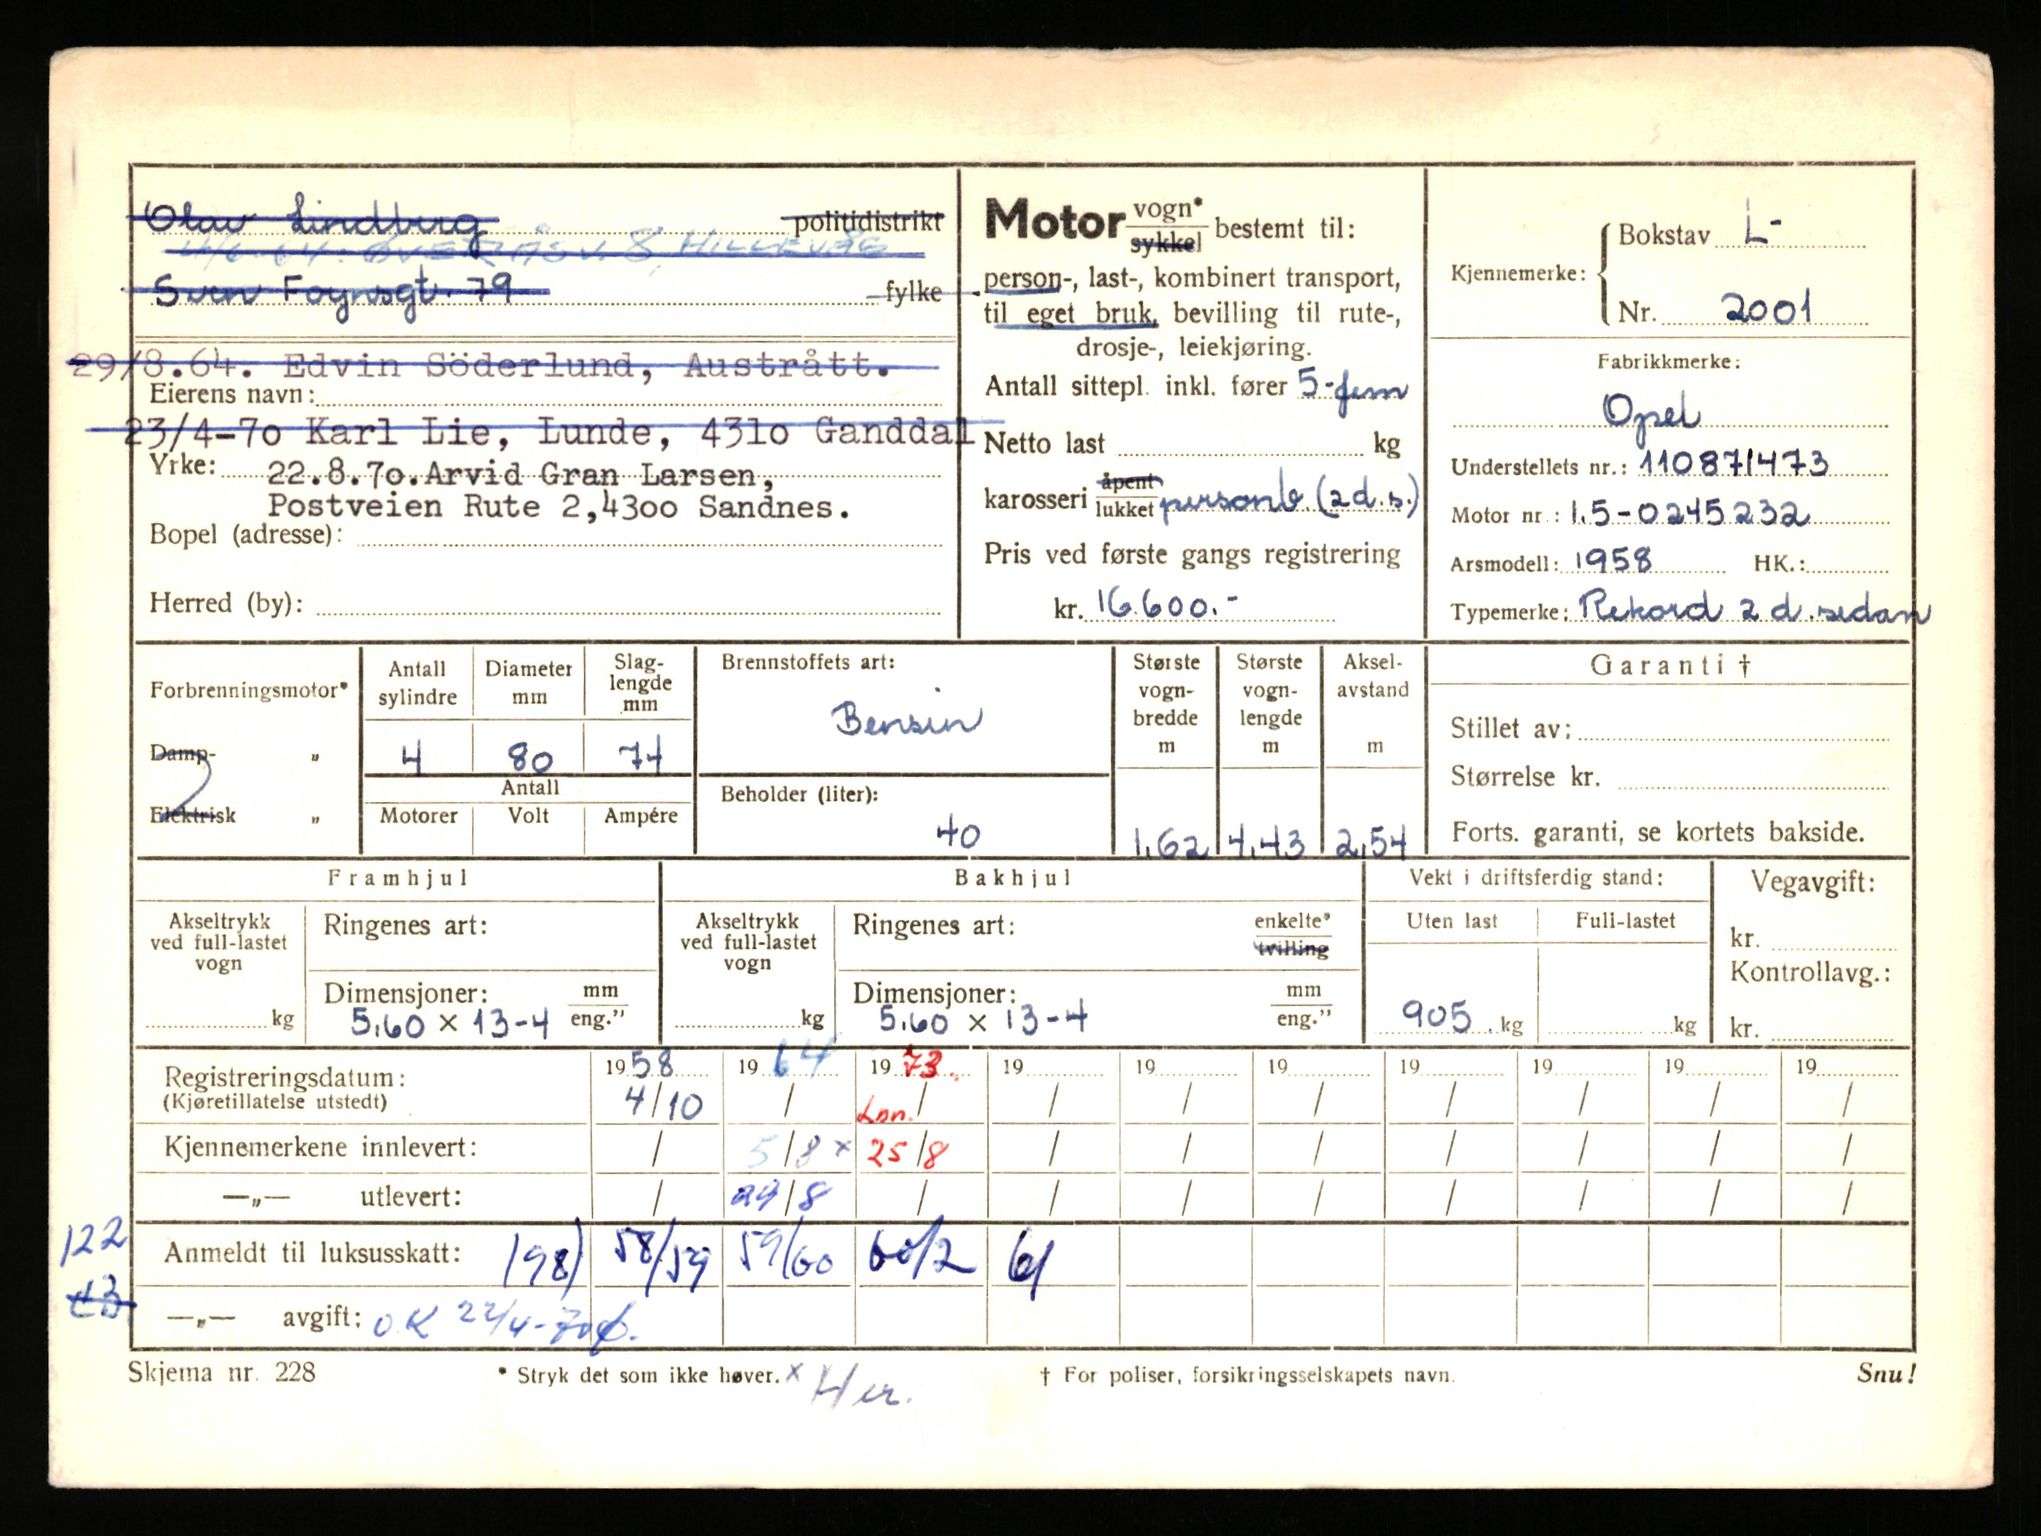 Olav Lindberg politidistrikt
HILLEVÅG
Sven Foynsgt. 79 fylke
29/8.64. Edvin Söderlund, Austrått.
Eierens navn:
23/4-70 Karl Lie, Lunde, 4310 Ganddal
Yrke: 22.8.70.Arvid Gran Larsen,
Postveien Rute 2,4300 Sandnes.
Bopel (adresse):
Herred (by):
Motor vogn* sykkel bestemt til:
person-, last-, kombinert transport,
til eget bruk, bevilling til rute-,
drosje-, leiekjøring.
Antall sittepl. inkl. fører 5-fem
Netto last kg
karosseri åpent lukket personb. (2d.s.)
Pris ved første gangs registrering
kr. 16.600.-
Kjennemerke: Bokstav L-
Nr. 2001
Fabrikkmerke:
Opel
Understellets nr.: 110871473
Motor nr.: 1.5-0245232
Arsmodell: 1958 HK.:
Typemerke: Rekord 2 d. sedan
Forbrenningsmotor*
Damp- „
Elektrisk „
Antall sylindre
4
Diameter mm
80
Slag-lengde mm
74
Antall
Motorer Volt Ampére
Brennstoffets art:
Bensin
Beholder (liter):
40
Største vogn-bredde m
1,62
Største vogn-lengde m
4,43
Aksel-avstand m
2,54
Garanti †
Stillet av:
Størrelse kr.
Forts. garanti, se kortets bakside.
Framhjul
Akseltrykk ved full-lastet vogn
kg
Ringenes art:
Dimensjoner: mm
5,60 x 13-4 eng."
Bakhjul
Akseltrykk ved full-lastet vogn
kg
Ringenes art: enkelte* tvilling
Dimensjoner: mm
5,60 x 13-4 eng."
Vekt i driftsferdig stand:
Uten last Full-lastet
905 kg kg
Vegavgift:
kr.
Kontrollavg.:
kr.
Registreringsdatum: 1958 1964 1973. 19 19 19 19 19 19 19
(Kjøretillatelse utstedt) 4/10 / / / / / / / / /
Kjennemerkene innlevert: / 5/8 x 25/8 / / / / / / /
—„— utlevert: / 29/8 / / / / / / / /
122
Anmeldt til luksusskatt: 198) 58/59 59/60 60/2 61
—„— avgift: O.K 22/4-70
Skjema nr. 228
* Stryk det som ikke høver. x Her.
† For poliser, forsikringsselskapets navn.
Snu!